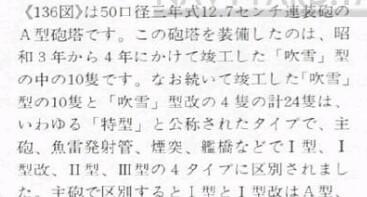 《136図》は50口径三年式12.7センチ連装砲の
A型砲塔です。この砲塔を装備したのは、昭
和3年から4年にかけて竣工した「吹雪」型
の中の10隻です。なお続いて竣工した「吹雪」
型の10隻と「吹雪」型改の4隻の計24隻は、
いわゆる「特型」と公称されたタイプで、主
砲、魚雷発射管、煙突、艦橋などでI型、I
型改、II型、III型の4タイプに区別されまし
た。主砲で区別するとI型とI型改はA型、